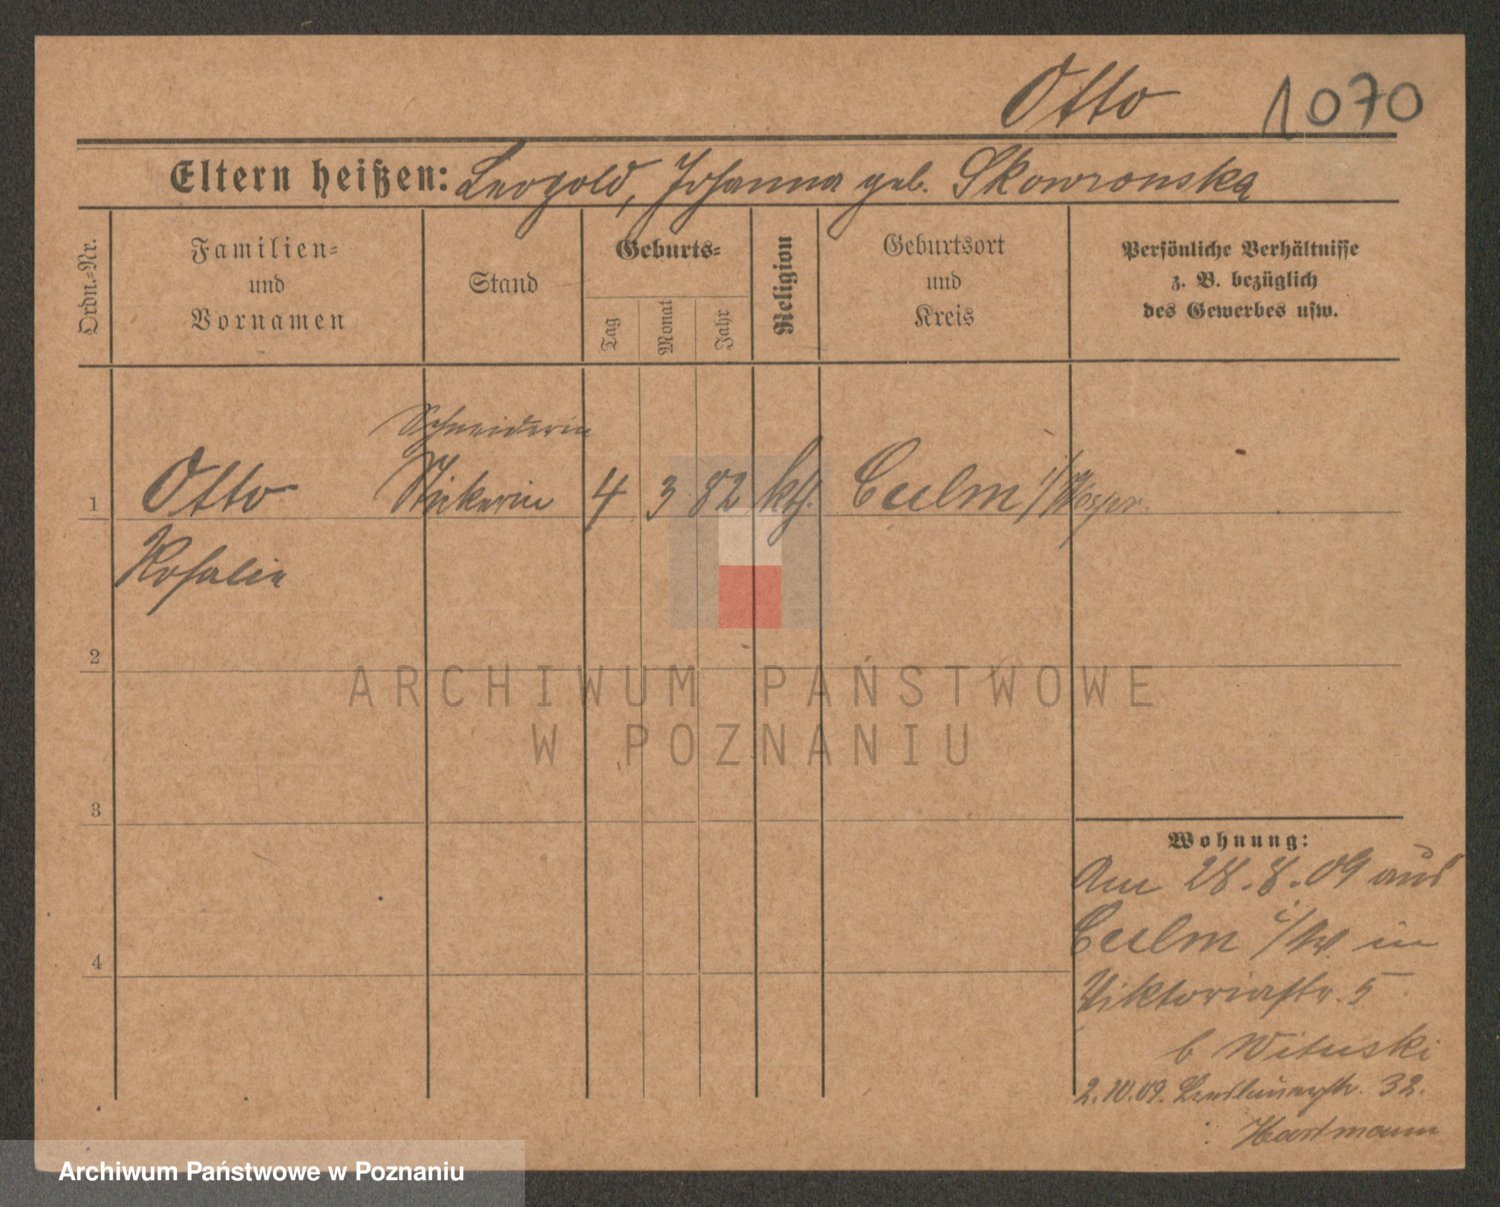 Otto 1070
Eltern heißen: Leopold, Johanna geb. Skowronska
Ordn.-Nr.
Familien-
und
Vornamen
Stand
Geburts-
Tag
Monat
Jahr
Religion
Geburtsort
und
Kreis
Persönliche Verhältnisse
z. B. bezüglich
des Gewerbes usw.
Schneiderin
1 Otto Stickerin 4 3 82 kth. Culm i/Wespr.
Rosalie
2
3
4
Wohnung:
Am 28.8.09 aus
Culm i/W. in
Viktoriastr. 5
b Wituski
2.10.09. Breslauerstr. 32.
Hartmann
ARCHIWUM PAŃSTWOWE
W POZNANIU
Archiwum Państwowe w Poznaniu